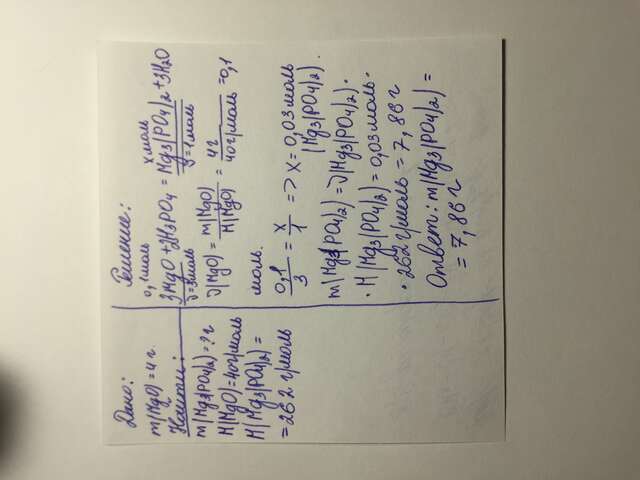 Дано:
m(MgO)=4г.
Найти:
m(Mg3(PO4)2)=?г
M(MgO)=40г/моль
M(Mg3(PO4)2)=
=262 г/моль
Решение:
0,1моль x моль
3MgO+2H3PO4=Mg3(PO4)2+3H2O
ν=3моль ν=1моль
ν(MgO)=m(MgO)/M(MgO)=4г/40г/моль=0,1
моль.
0,1/3=x/1 => x=0,03моль
(Mg3(PO4)2).
m(Mg3(PO4)2)=ν(Mg3(PO4)2)·
·M(Mg3(PO4)2)=0,03моль·
·262г/моль=7,86г
Ответ: m(Mg3(PO4)2)=
=7,86г